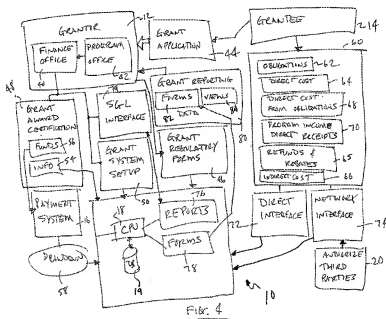 GRANTOR
212
FINANCE
OFFICE
PROGRAM
OFFICE
42
GRANT
APPLICATION
44
GRANTEE
214
60
OBLIGATIONS
62
DIRECT COST
64
DIRECT COST
FROM OBLIGATIONS
68
PROGRAM INCOME
DIRECT RECEIPTS
70
REFUNDS &
REBATES
65
INDIRECT COST
66
GRANT REPORTING
FORMS
VIEWS
82
DATA
84
80
48
GRANT
AWARD
CERTIFICATION
FUNDS
56
INFO
54
SGL
INTERFACE
GRANT
SYSTEM
SETUP
50
GRANT
REGULATORY
FORMS
46
PAYMENT
SYSTEM
16
DRAWDOWN
58
18
CPU
19
REPORTS
76
FORMS
78
72
DIRECT
INTERFACE
NETWORK
INTERFACE
74
AUTHORIZE
THIRD
PARTIES
20
10
FIG. 4